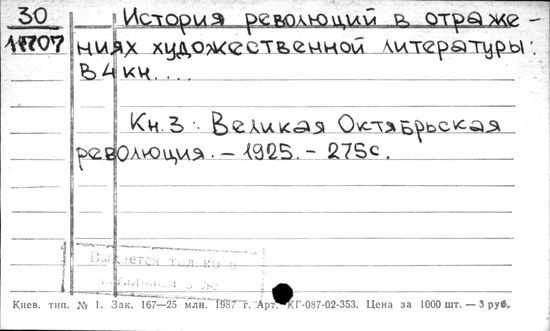 30
11707
История революций в отраже-
ниях художественной литературы:
В 4 кн....
Кн. 3: Великая Октябрьская
революция. – 1925. – 275с.
Выдается только в
Киев. тип. № 1. Зак. 167—25 млн. 1987 г. Арт. КГ-087-02-353. Цена за 1000 шт. — 3 руб.